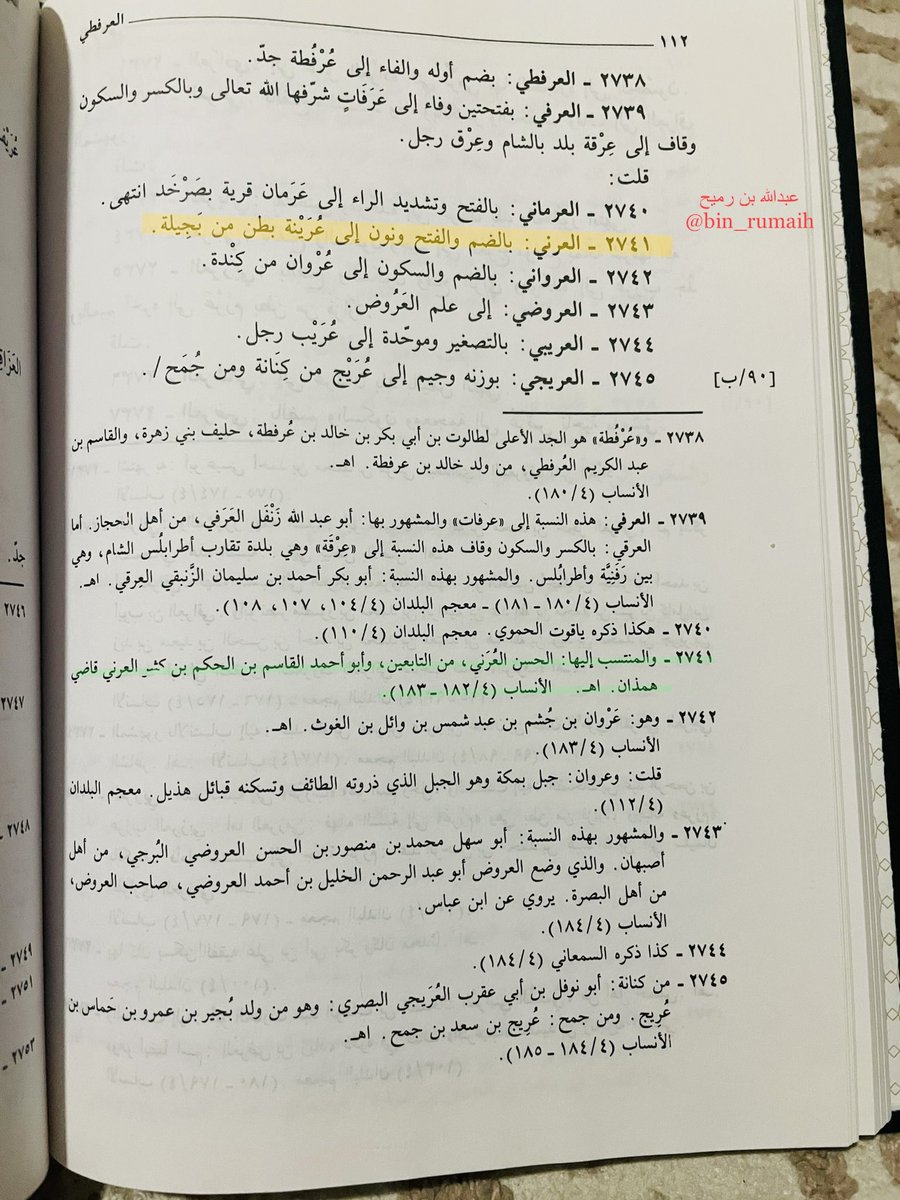 ١١٢ العرفطي
٢٧٣٨ ـ العرفطي: بضم أوله والفاء إلى عُرْفُطة جدّ.
٢٧٣٩ ـ العرفي: بفتحتين وفاء إلى عَرَفَاتٍ شرّفها الله تعالى وبالكسر والسكون
وقاف إلى عِرْقة بلد بالشام وعِرْق رجل.
قلت:
٢٧٤٠ ـ العرماني: بالفتح وتشديد الراء إلى عَرَمان قرية بصَرْخَد انتهى.
عبدالله بن رميح
@bin_rumaih
٢٧٤١ ـ العرني: بالضم والفتح ونون إلى عُرَيْنة بطن من بَجِيلة.
٢٧٤٢ ـ العرواني: بالضم والسكون إلى عُرْوان من كِنْدة.
٢٧٤٣ ـ العروضي: إلى علم العَرُوض.
٢٧٤٤ ـ العريبي: بالتصغير وموحّدة إلى عُرَيْب رجل.
٢٧٤٥ ـ العريجي: بوزنه وجيم إلى عُرَيْج من كِنَانة ومن جُمَح/.
[٩٠/ب]
٢٧٣٨ ـ و«عُرْفُطة» هو الجد الأعلى لطالوت بن أبي بكر بن خالد بن عُرفطة، حليف بني زهرة، والقاسم بن
عبد الكريم العُرفطي، من ولد خالد بن عرفطة. اهـ.
الأنساب (٤/١٨٠).
٢٧٣٩ ـ العرفي: هذه النسبة إلى «عرفات» والمشهور بها: أبو عبد الله زَنْفَل العَرَفي، من أهل الحجاز. أما
العرقي: بالكسر والسكون وقاف هذه النسبة إلى «عِرْقَة» وهي بلدة تقارب أطرابلُس الشام، وهي
بين رَفَنِيَّة وأطرابُلس. والمشهور بهذه النسبة: أبو بكر أحمد بن سليمان الزَّنبقي العِرقي. اهـ.
الأنساب (٤/١٨٠ ـ ١٨١) ـ معجم البلدان (٤/١٠٤، ١٠٧، ١٠٨).
٢٧٤٠ ـ هكذا ذكره ياقوت الحموي. معجم البلدان (٤/١١٠).
٢٧٤١ ـ والمنتسب إليها: الحسن العُرَني، من التابعين، وأبو أحمد القاسم بن الحكم بن كثير العرني قاضي
همذان. اهـ. الأنساب (٤/١٨٢ ـ ١٨٣).
٢٧٤٢ ـ وهو: عَرْوان بن جُشم بن عبد شمس بن وائل بن الغوث. اهـ.
الأنساب (٤/١٨٣).
قلت: وعروان: جبل بمكة وهو الجبل الذي ذروته الطائف وتسكنه قبائل هذيل. معجم البلدان
(٤/١١٢).
٢٧٤٣ ـ والمشهور بهذه النسبة: أبو سهل محمد بن منصور بن الحسن العروضي البُرجي، من أهل
أصبهان. والذي وضع العروض أبو عبد الرحمن الخليل بن أحمد العروضي، صاحب العروض،
من أهل البصرة. يروي عن ابن عباس.
الأنساب (٤/١٨٤).
٢٧٤٤ ـ كذا ذكره السمعاني (٤/١٨٤).
٢٧٤٥ ـ من كنانة: أبو نوفل بن أبي عقرب العُرَيجي البصري: وهو من ولد بُجير بن عمرو بن حَماس بن
عُريج. ومن جمح: عُريج بن سعد بن جمح. اهـ.
الأنساب (٤/١٨٤ ـ ١٨٥).
جدّ.
٢٧٤٦
٢٧٤٧
٢٧٤٨
٢٧٤٩ ـ
٢٧٥١ ـ
٢٧٥٣ ـ